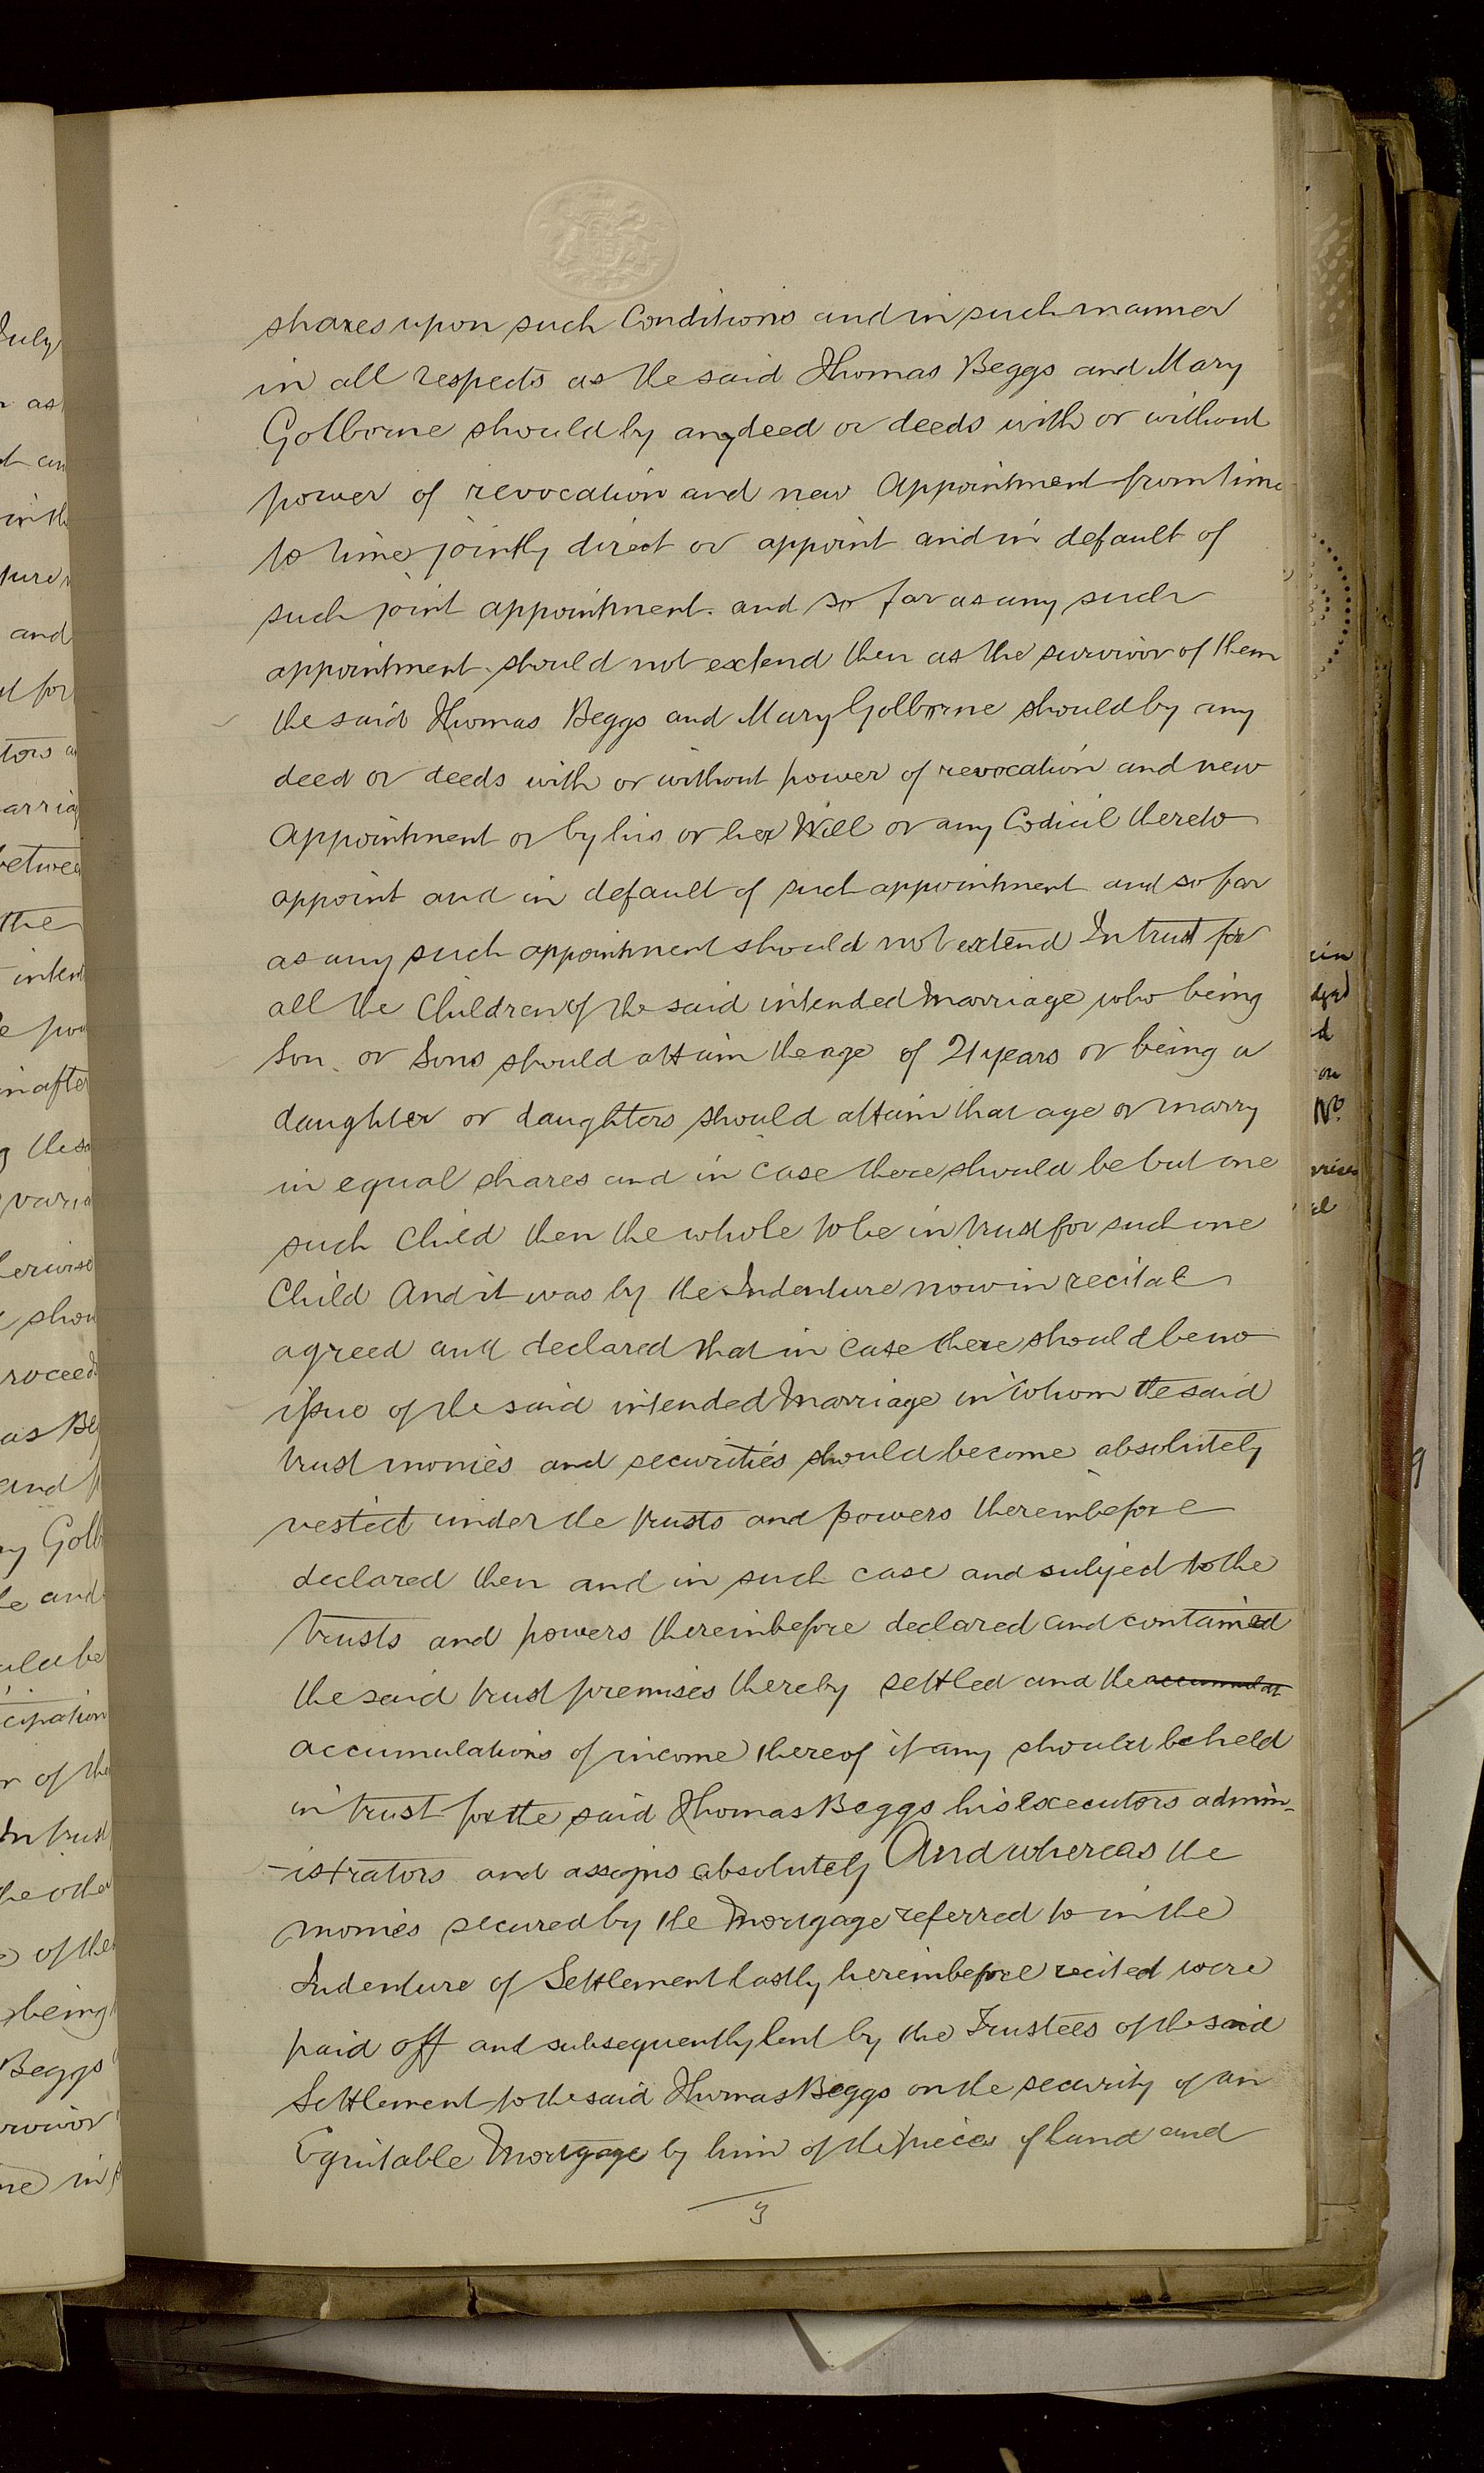 shares upon such Conditions and in such manner
in all respects as the said Thomas Beggs and Mary
Golborne should by any deed or deeds with or without
power of revocation and new Appointment from time
to time jointly direct or appoint and in default of
such joint appointment and so far as any such
appointment should not extend then as the survivor of them
the said Thomas Beggs and Mary Golborne should by any
deed or deeds with or without power of revocation and new
Appointment or by his or her Will or any Codicil thereto
appoint and in default of such appointment and so far
as any such appointment should not extend In trust for
all the Children of the said intended Marriage who being
Son or Sons should attain the age of 21 years or being a
daughter or daughters should attain that age or marry
in equal shares and in case there should be but one
such Child then the whole to be in trust for such one
Child And it was by the Indenture now in recital
agreed and declared that in case there should be no
issue of the said intended Marriage in whom the said
trust monies and securities should become absolutely
vested under the trusts and powers thereinbefore
declared then and in such case and subject to the
trusts and powers thereinbefore declared and contained
the said trust premises thereby settled and the accumulat
accumulations of income thereof if any should be held
in trust for the said Thomas Beggs his executors admin-
-istrators and assigns absolutely And whereas the
monies secured by the Mortgage referred to in the
Indenture of Settlement lastly hereinbefore recited were
paid off and subsequently lent by the Trustees of the said
Settlement to the said Thomas Beggs on the security of an
Equitable Mortgage by him of the pieces of land and
3